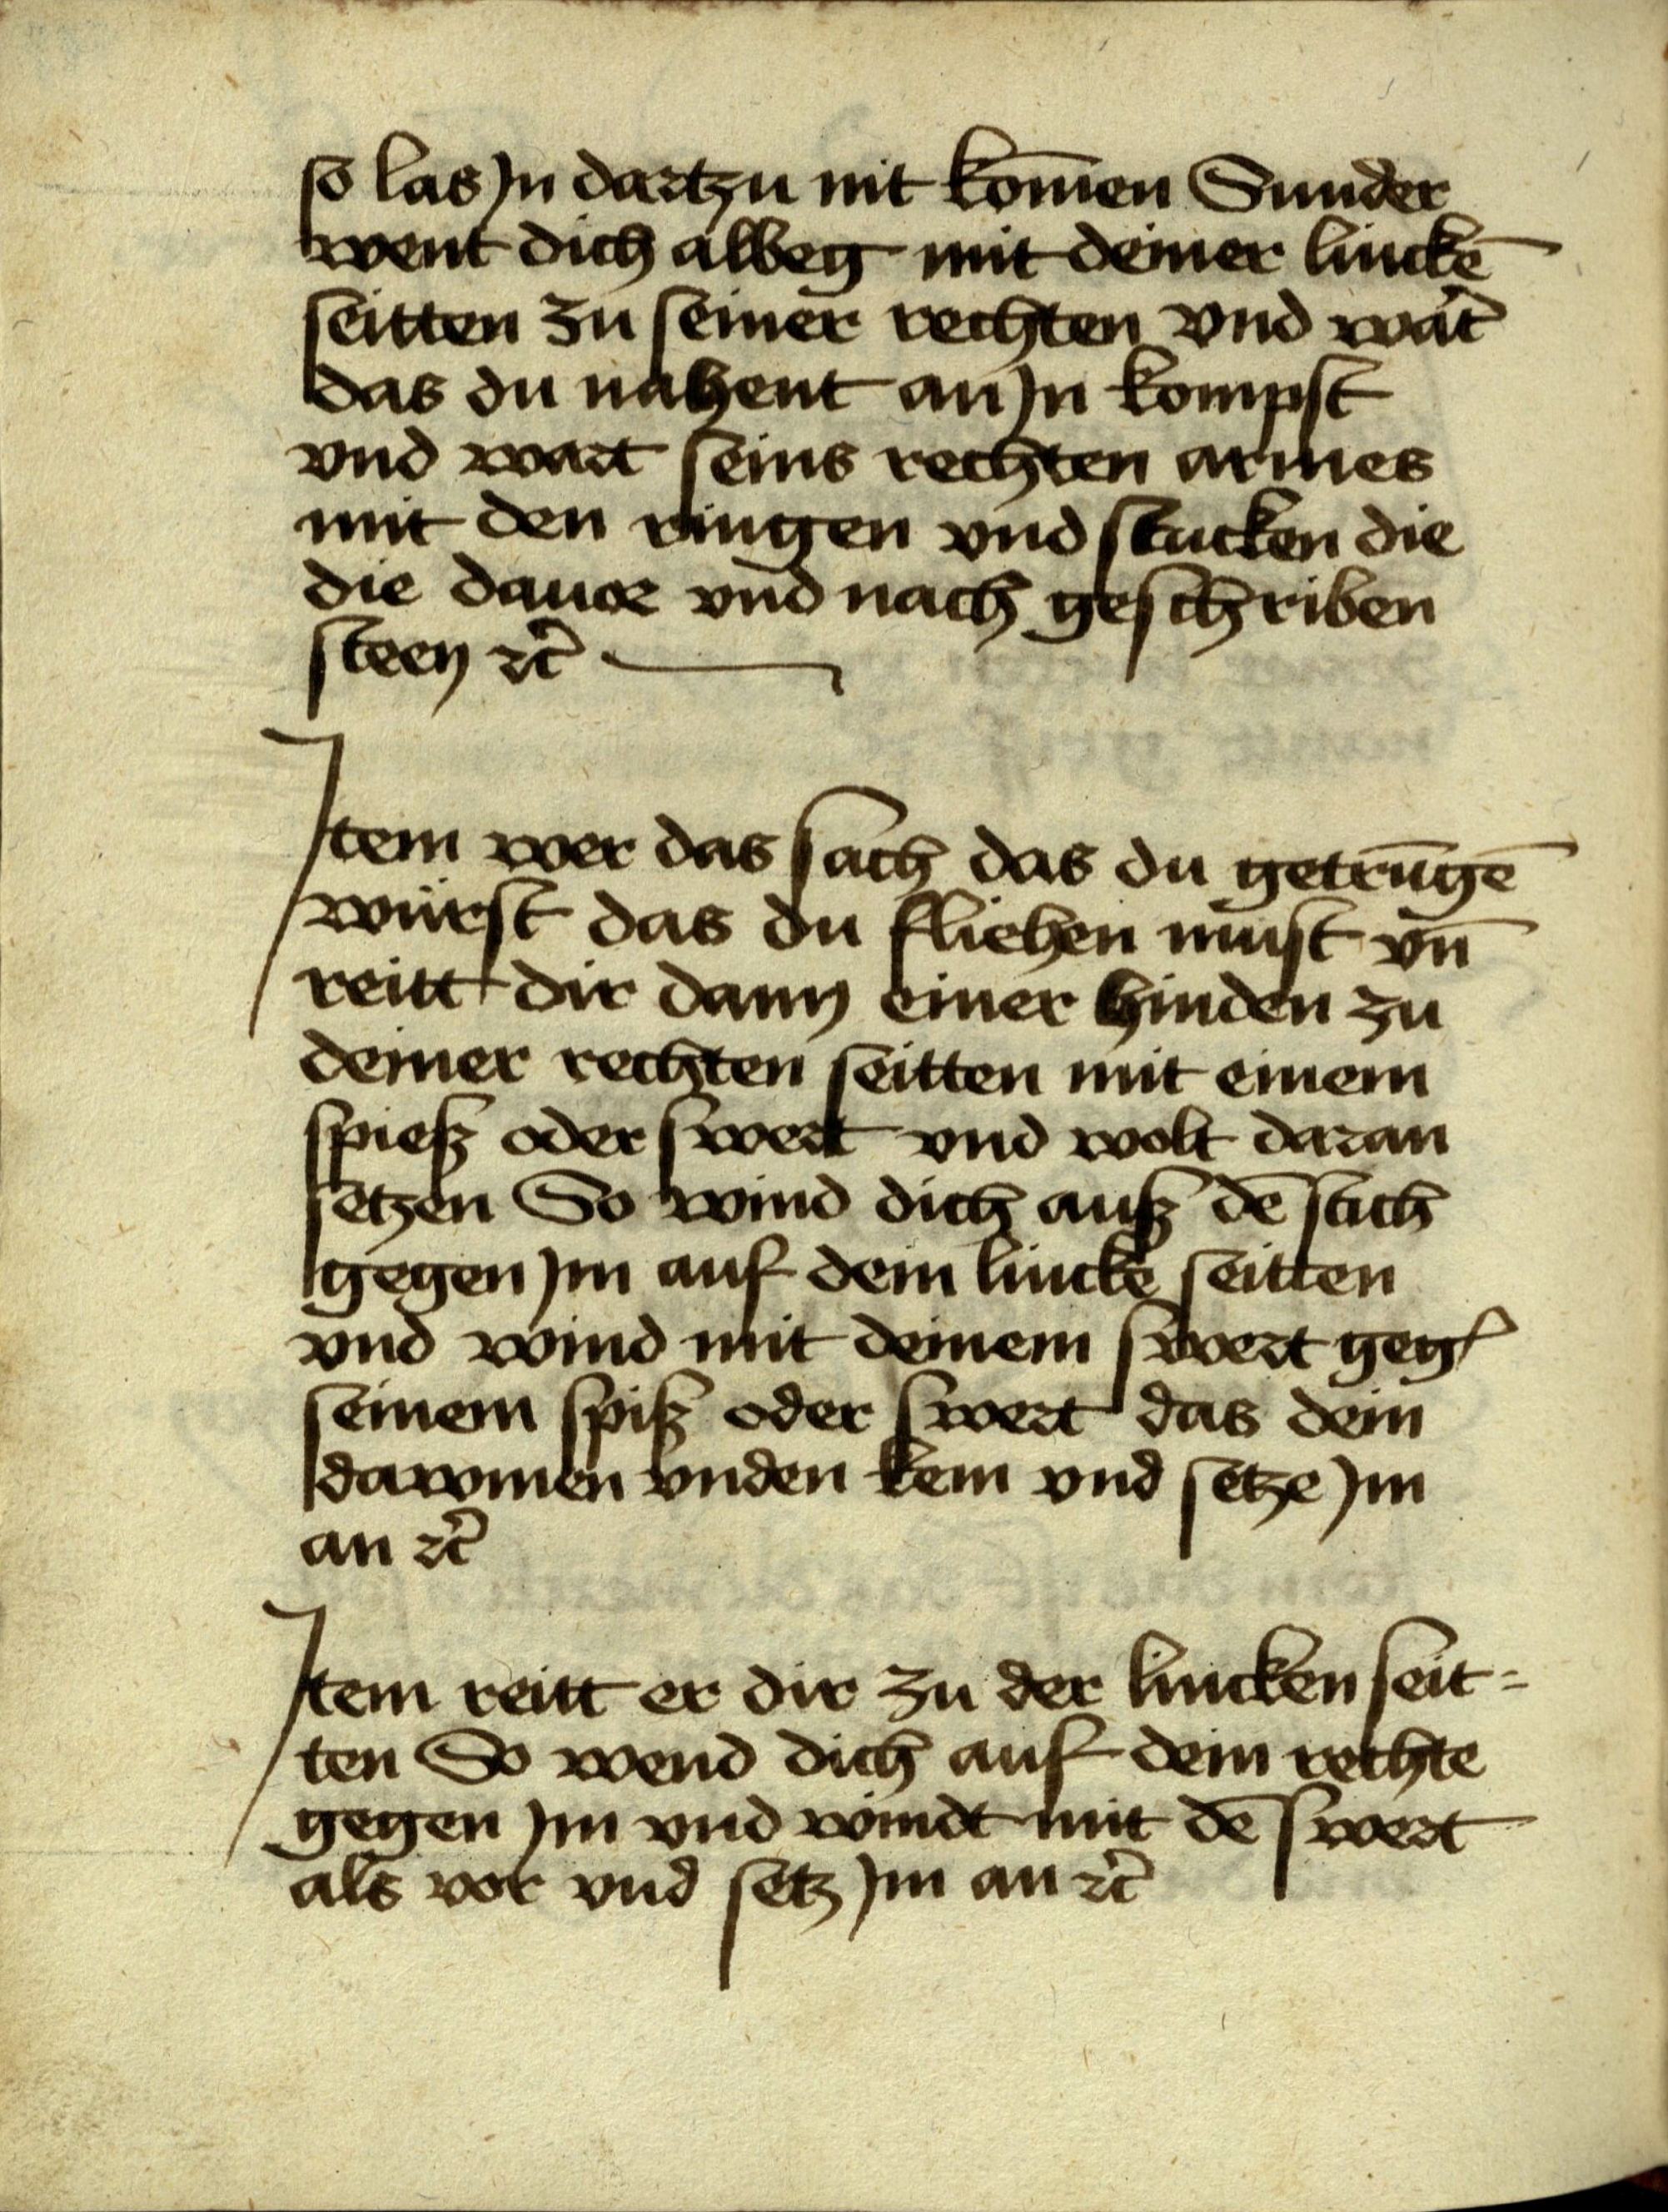 so las Jn dartzu nit kom̄en Sunder
went dich albeg mit deiner linckē
seitten zu seiner rechten vnd wart̄
das du nahent an Jn kompst
vnd wart seins rechten armes
mit den ringen vnd stucken die
die dauor vnd nach geschriben
steen ꝛc̄
Jtem wer das sach das du getrūgē
würst das du fliehen must vn̄
reitt dir dann einer hinden zu
deiner rechten seitten mit einem
spieß oder swert vnd wolt daran
setzen So wind dich auß dē stich
gegen Jm auf dein linckē seitten
vnd wind mit deinem swert geg̉
seinem spiß oder swert das dein
dawmen vnden kem vnd setze Jm
an ꝛc̄
Jtem reitt er dir zu der lincken seit=
ten So wend dich auf dein rechte
gegen Jm vnd windt mit dē swert
als vor vnd setz Jm an ꝛc̄